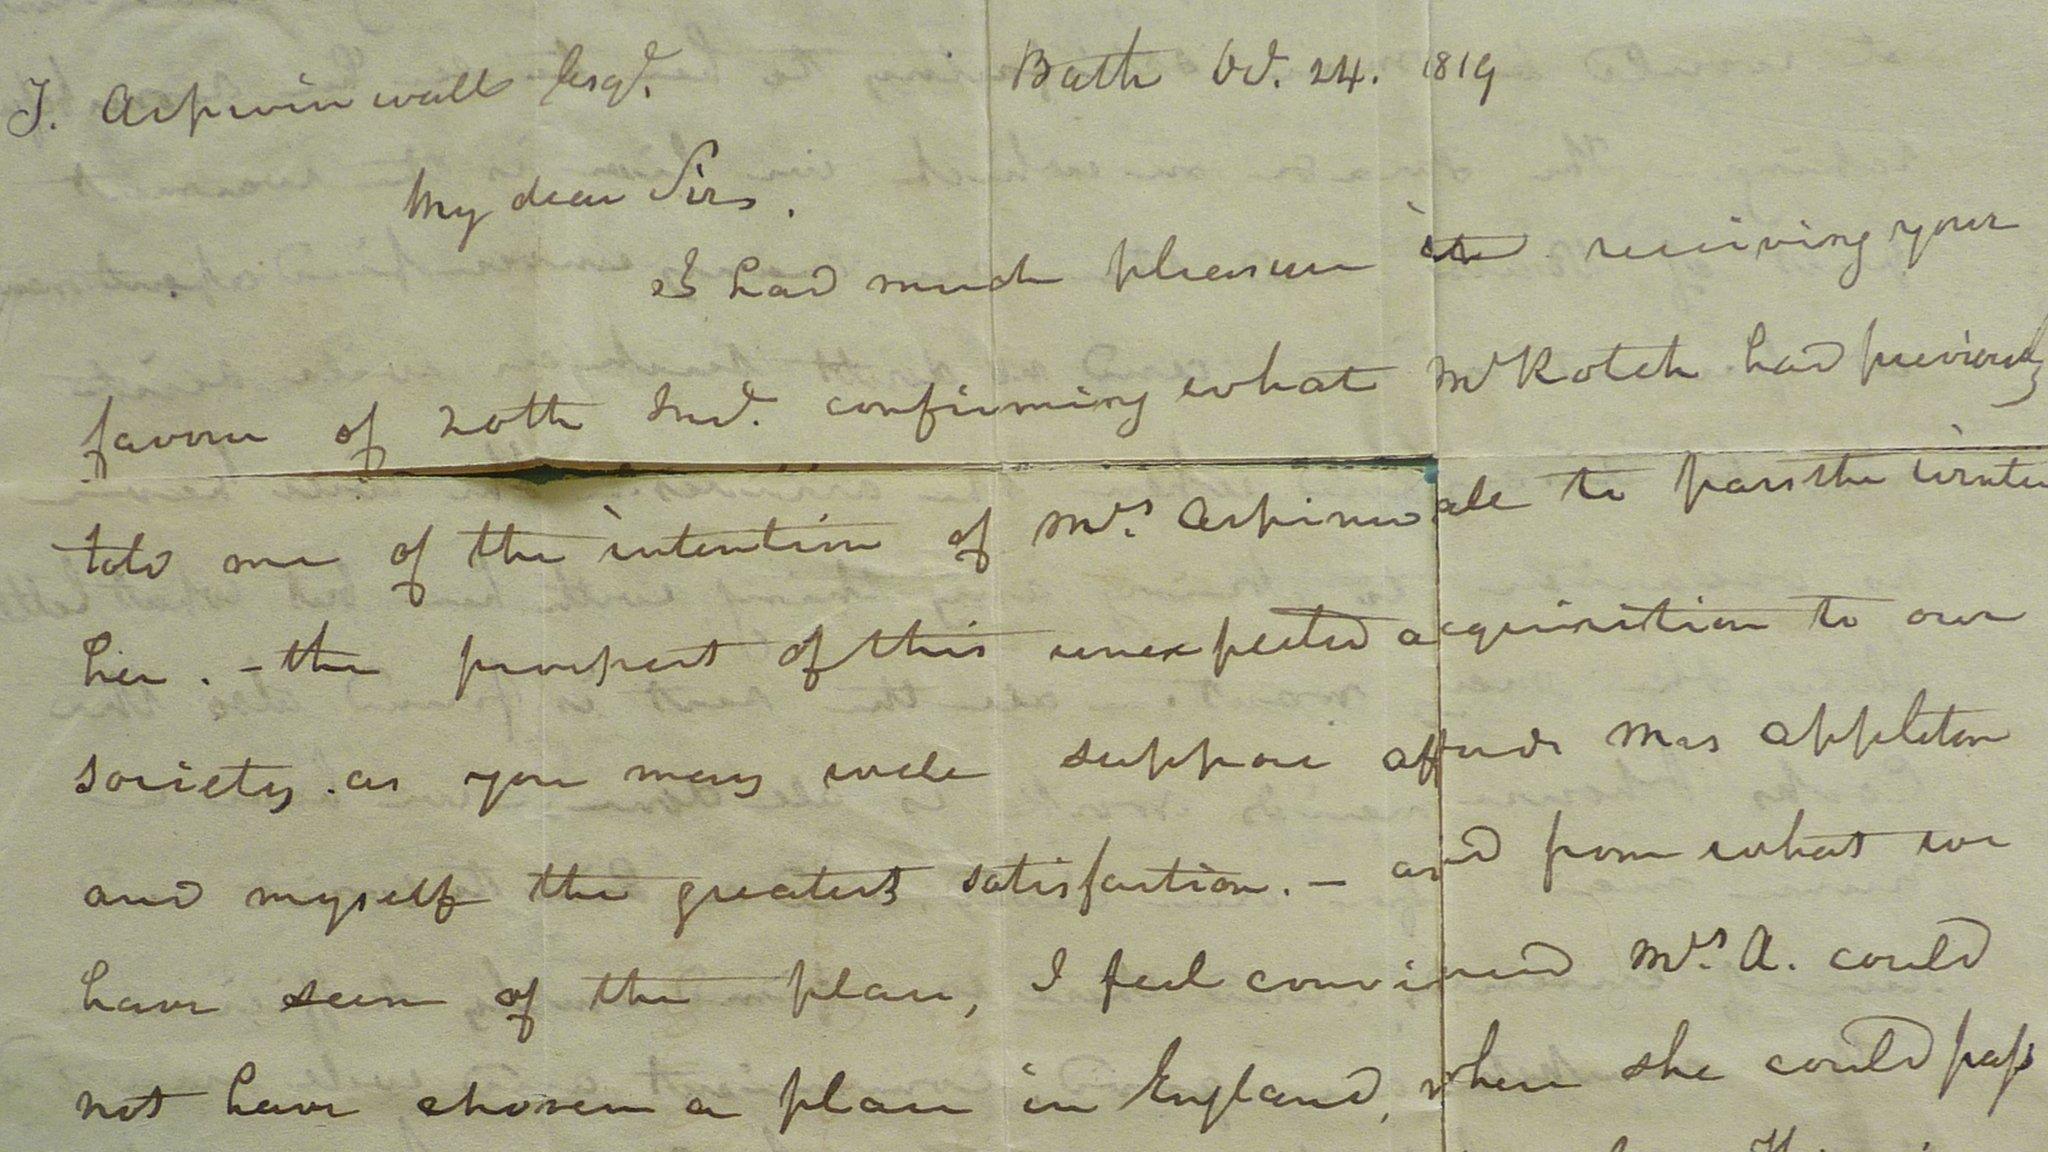 T. Aspinwall Esqr. Bath Oct. 24. 1819
My dear Sir.
I had much pleasure in receiving your
favour of 20th Inst. confirming what Mr Rotch had previously
told me of the intention of Mrs. Aspinwall to pass the winter
here. - the prospect of this unexpected acquisition to our
society. as you may well suppose affords Mrs Appleton
and myself the greatest satisfaction. - and from what we
have seen of the place, I feel convinced Mrs. A. could
not have chosen a place in England, where she could pass